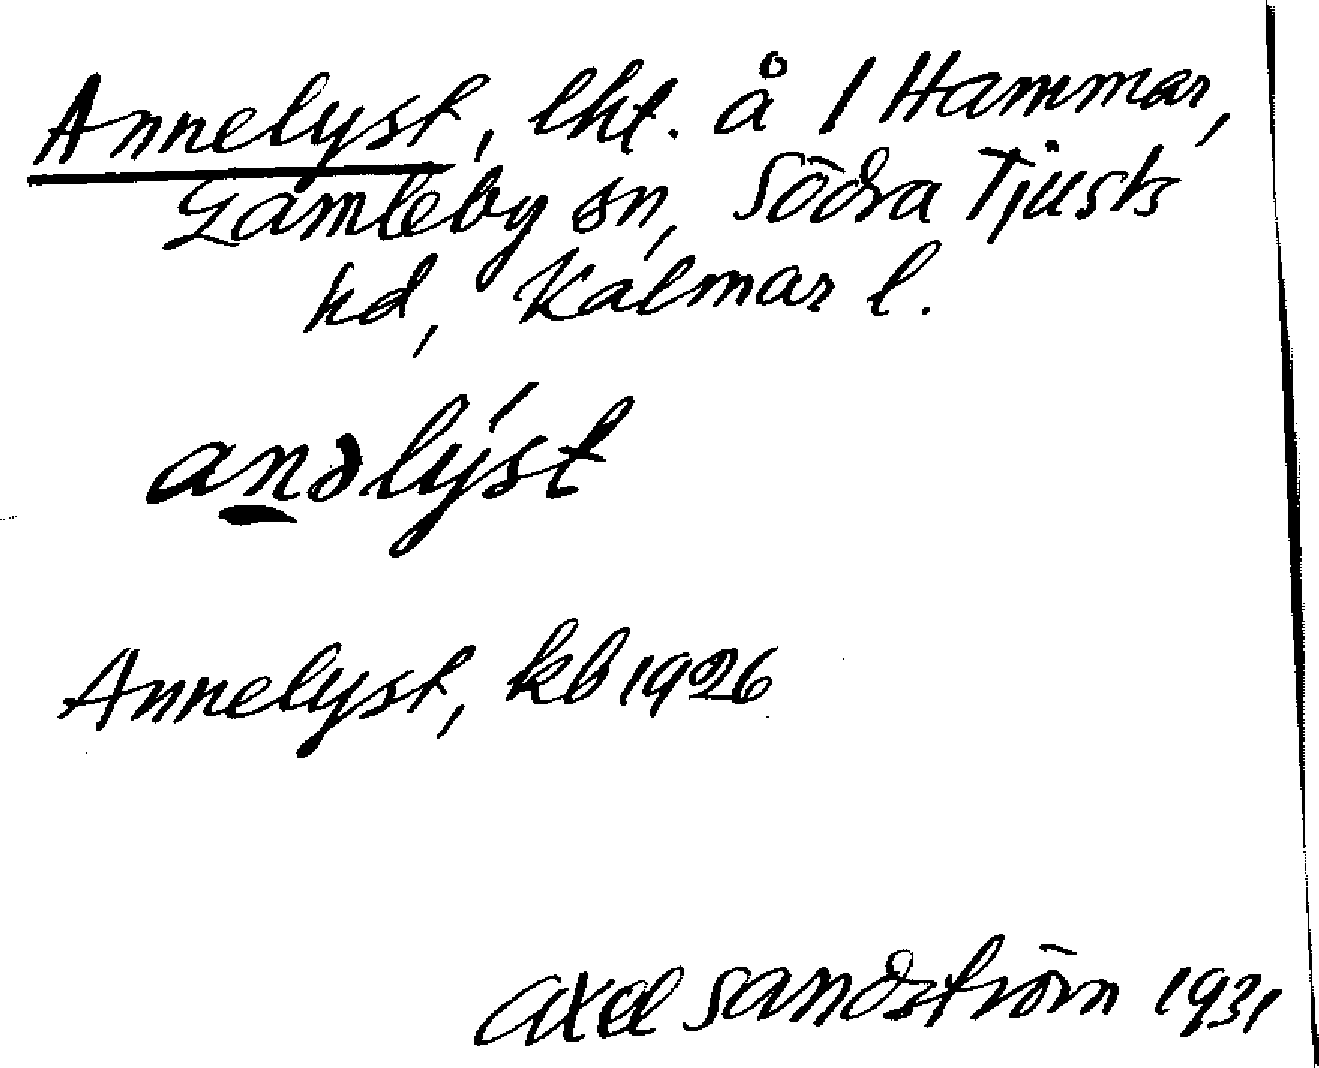 Annelyst, lht. å 1 Hammar,
Gamleby sn, Södra Tjusts
hd, Kalmar l.
anəlýst
Annelyst, kb 1926
Axel Sandström 1931